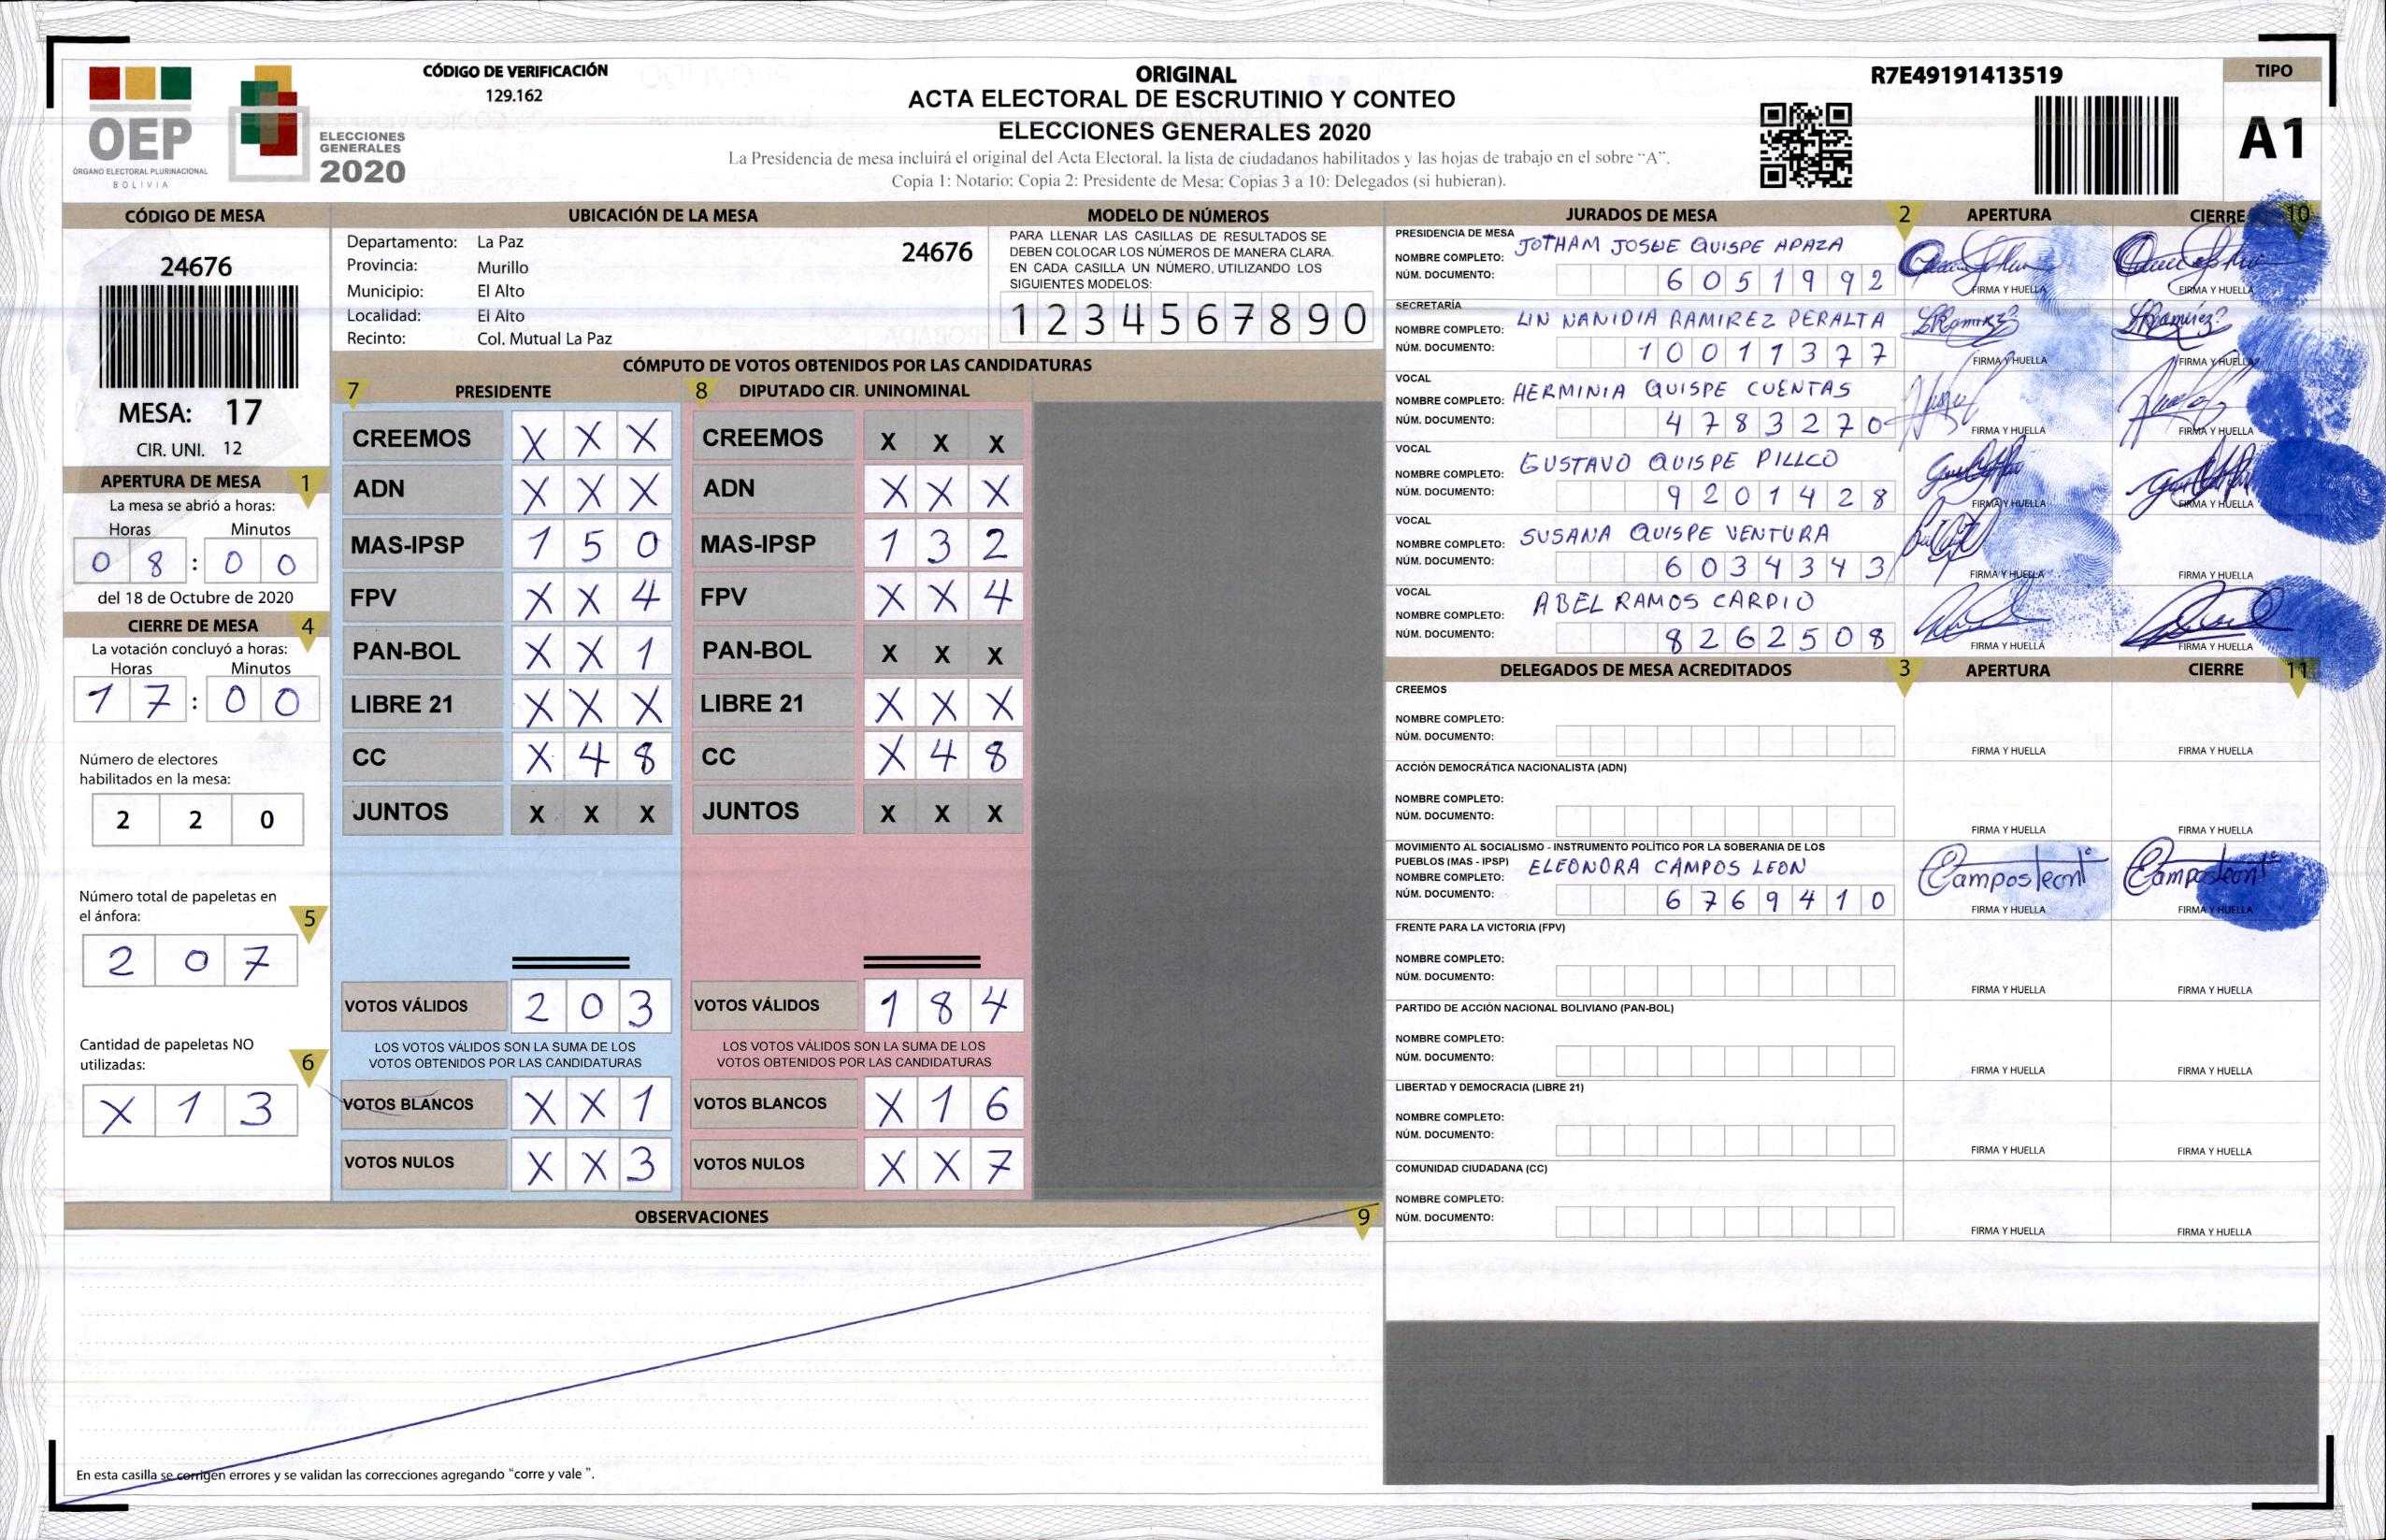 OEP
ÓRGANO ELECTORAL PLURINACIONAL
BOLIVIA
ELECCIONES
GENERALES
2020
CÓDIGO DE VERIFICACIÓN
129.162
ORIGINAL
ACTA ELECTORAL DE ESCRUTINIO Y CONTEO
ELECCIONES GENERALES 2020
La Presidencia de mesa incluirá el original del Acta Electoral, la lista de ciudadanos habilitados y las hojas de trabajo en el sobre “A”.
Copia 1: Notario; Copia 2: Presidente de Mesa; Copias 3 a 10: Delegados (si hubieran).
R7E49191413519
TIPO
A1
CÓDIGO DE MESA
24676
MESA: 17
CIR. UNI. 12
APERTURA DE MESA 1
La mesa se abrió a horas:
Horas Minutos
0 8 : 0 0
del 18 de Octubre de 2020
CIERRE DE MESA 4
La votación concluyó a horas:
Horas Minutos
1 7 : 0 0
Número de electores
habilitados en la mesa:
2 2 0
Número total de papeletas en
el ánfora: 5
2 0 7
Cantidad de papeletas NO
utilizadas: 6
X 1 3
UBICACIÓN DE LA MESA
Departamento: La Paz
24676
Provincia: Murillo
Municipio: El Alto
Localidad: El Alto
Recinto: Col. Mutual La Paz
MODELO DE NÚMEROS
PARA LLENAR LAS CASILLAS DE RESULTADOS SE
DEBEN COLOCAR LOS NÚMEROS DE MANERA CLARA.
EN CADA CASILLA UN NÚMERO, UTILIZANDO LOS
SIGUIENTES MODELOS:
1 2 3 4 5 6 7 8 9 0
CÓMPUTO DE VOTOS OBTENIDOS POR LAS CANDIDATURAS
7 PRESIDENTE
CREEMOS X X X
ADN X X X
MAS-IPSP 1 5 0
FPV X X 4
PAN-BOL X X 1
LIBRE 21 X X X
CC X 4 8
JUNTOS X X X
VOTOS VÁLIDOS 2 0 3
LOS VOTOS VÁLIDOS SON LA SUMA DE LOS
VOTOS OBTENIDOS POR LAS CANDIDATURAS
VOTOS BLANCOS X X 1
VOTOS NULOS X X 3
8 DIPUTADO CIR. UNINOMINAL
CREEMOS X X X
ADN X X X
MAS-IPSP 1 3 2
FPV X X 4
PAN-BOL X X X
LIBRE 21 X X X
CC X 4 8
JUNTOS X X X
VOTOS VÁLIDOS 1 8 4
LOS VOTOS VÁLIDOS SON LA SUMA DE LOS
VOTOS OBTENIDOS POR LAS CANDIDATURAS
VOTOS BLANCOS X 1 6
VOTOS NULOS X X 7
OBSERVACIONES 9
En esta casilla se corrigen errores y se validan las correcciones agregando “corre y vale ”.
JURADOS DE MESA 2 APERTURA CIERRE 10
PRESIDENCIA DE MESA
NOMBRE COMPLETO: JOTHAM JOSUE QUISPE APAZA
NÚM. DOCUMENTO: 6 0 5 1 9 9 2
FIRMA Y HUELLA FIRMA Y HUELLA
SECRETARÍA
NOMBRE COMPLETO: LIN NANIDIA RAMIREZ PERALTA
NÚM. DOCUMENTO: 1 0 0 1 1 3 7 7
FIRMA Y HUELLA FIRMA Y HUELLA
VOCAL
NOMBRE COMPLETO: HERMINIA QUISPE CUENTAS
NÚM. DOCUMENTO: 4 7 8 3 2 7 0
FIRMA Y HUELLA FIRMA Y HUELLA
VOCAL
NOMBRE COMPLETO: GUSTAVO QUISPE PILLCO
NÚM. DOCUMENTO: 9 2 0 1 4 2 8
FIRMA Y HUELLA FIRMA Y HUELLA
VOCAL
NOMBRE COMPLETO: SUSANA QUISPE VENTURA
NÚM. DOCUMENTO: 6 0 3 4 3 4 3
FIRMA Y HUELLA FIRMA Y HUELLA
VOCAL
NOMBRE COMPLETO: ABEL RAMOS CARDIO
NÚM. DOCUMENTO: 8 2 6 2 5 0 8
FIRMA Y HUELLA FIRMA Y HUELLA
DELEGADOS DE MESA ACREDITADOS 3 APERTURA CIERRE 11
CREEMOS
NOMBRE COMPLETO:
NÚM. DOCUMENTO:
FIRMA Y HUELLA FIRMA Y HUELLA
ACCIÓN DEMOCRÁTICA NACIONALISTA (ADN)
NOMBRE COMPLETO:
NÚM. DOCUMENTO:
FIRMA Y HUELLA FIRMA Y HUELLA
MOVIMIENTO AL SOCIALISMO - INSTRUMENTO POLÍTICO POR LA SOBERANIA DE LOS
PUEBLOS (MAS - IPSP)
NOMBRE COMPLETO: ELEONORA CAMPOS LEON
NÚM. DOCUMENTO: 6 7 6 9 4 1 0
FIRMA Y HUELLA FIRMA Y HUELLA
FRENTE PARA LA VICTORIA (FPV)
NOMBRE COMPLETO:
NÚM. DOCUMENTO:
FIRMA Y HUELLA FIRMA Y HUELLA
PARTIDO DE ACCIÓN NACIONAL BOLIVIANO (PAN-BOL)
NOMBRE COMPLETO:
NÚM. DOCUMENTO:
FIRMA Y HUELLA FIRMA Y HUELLA
LIBERTAD Y DEMOCRACIA (LIBRE 21)
NOMBRE COMPLETO:
NÚM. DOCUMENTO:
FIRMA Y HUELLA FIRMA Y HUELLA
COMUNIDAD CIUDADANA (CC)
NOMBRE COMPLETO:
NÚM. DOCUMENTO:
FIRMA Y HUELLA FIRMA Y HUELLA